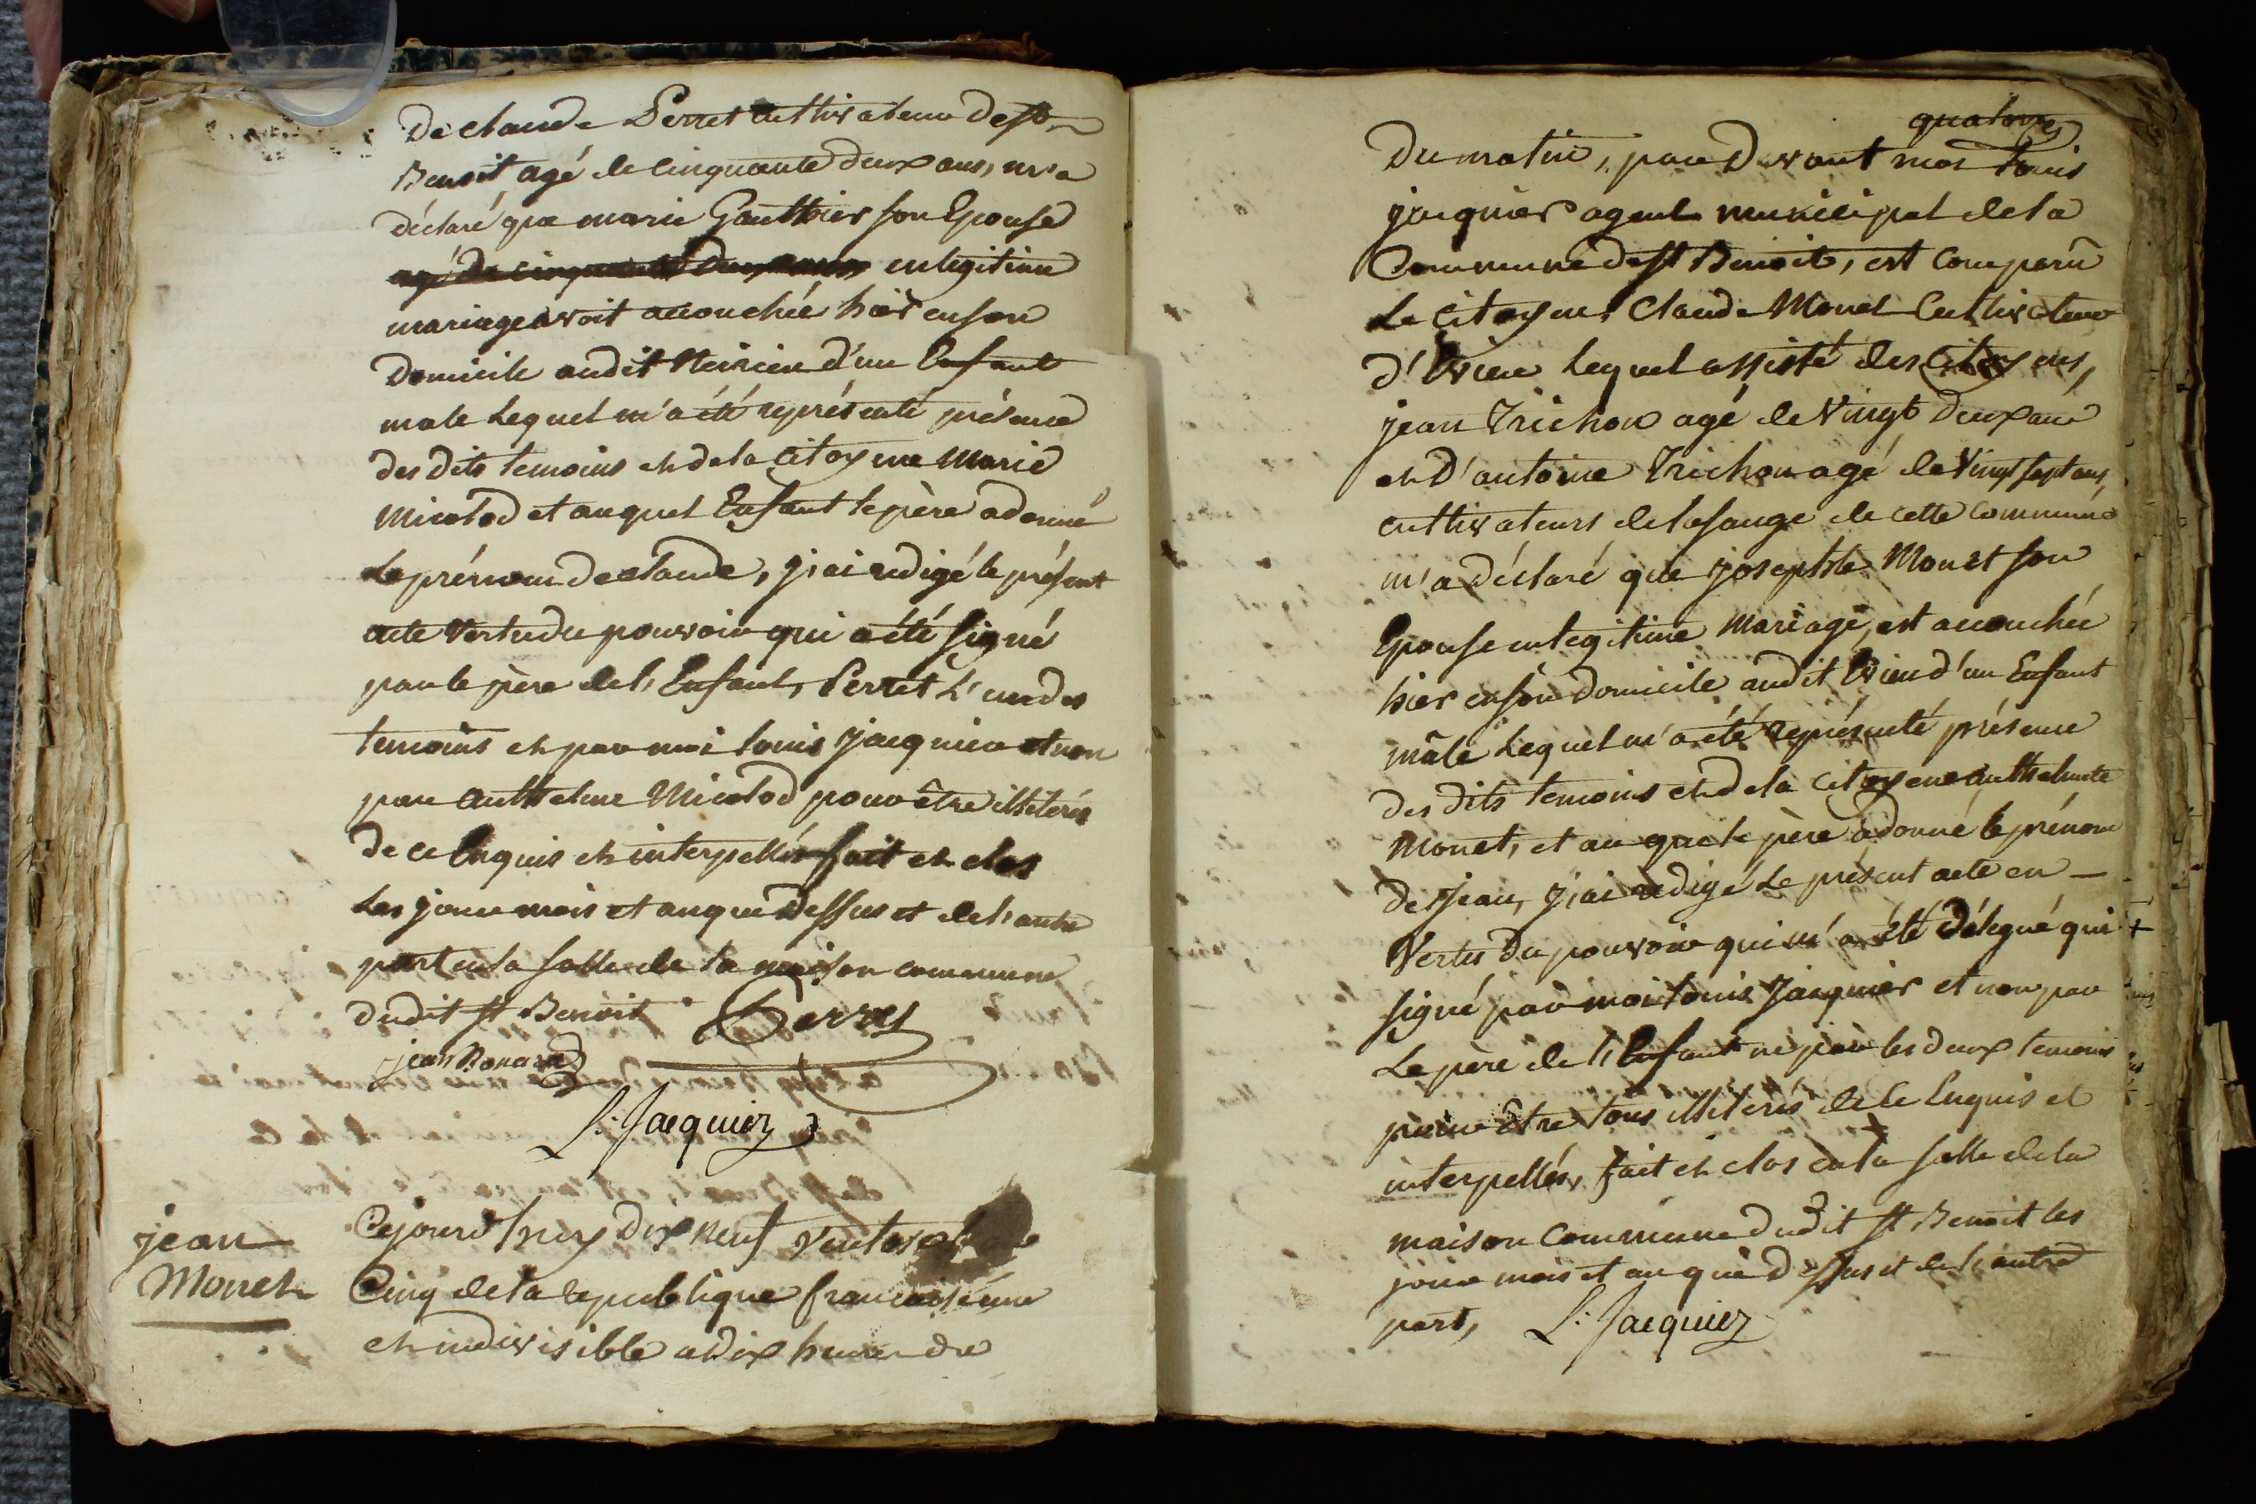 De claude Perret Cultivateur de st
Benoit agé de cinquante deux ans, m'a
déclaré que marie Gauthier son Epouse
agé de cinquante deux ans en legitime
mariage avoit accouchée hier en son
Domicile audit d'un Enfant
male Lequel m'a été représenté présence
des dits temoins et de la citoyene Marie
Micolod et auquel Enfant le père a donné
Le prénom de claude, j'ai redigé le présent
acte Vertu du pouvoir qui a été signé
par le père de l'Enfant, Perret L'un des
temoins et par moi Louis Jacquier et non
par Anthelme Micolod pour être illiterés
de ce Enquis et interpellés fait et clos
Les jour mois et an que Dessus et de l'autre
part en la salle de la maison commune
dudit st Benoit Perret
jean Bonard
L: Jacquier
jean
Monet
Cejourd'huy dix neuf Ventose
Cinq de la republique francaise une
et indivisible a dix heure du
quatorze
Du matin, par Devant moi Louis
jacquier agent municipal de la
Commune de st Benoit, est comparû
Le Citoyen, Claude Monet Cultivateur
d'Evieu Lequel assisté des Citoyens,
jean Trichon agé de Vingt deux ans
et D'antoine Trichon agé de Vingt sept ans,
cultivateurs de lasauge de cette commune
m'a déclaré que josephte Monet son
Epouse en legitime Mariage, est accouchée
hier en son Domicile audit Evieu d'un Enfant
mâle Lequel m'a été représenté présence
des dits temoins et de la citoyene anthelmette
Monet, et au quel le père a donné le prénom
de Jean, J'ai redigé Le présent acte en —
Vertu Du pouvoir qui m'a été Délegué qui +
signé par moi Louis Jacquier et non par
Le père de l'Enfant ni par les deux temoins
pour être tous illiterés de ce Enquis et
interpellés, fait et clos en la salle de la
maison commune dudit st Benoit les
jour mois et an que dessus et de l'autre
part, L: Jacquier